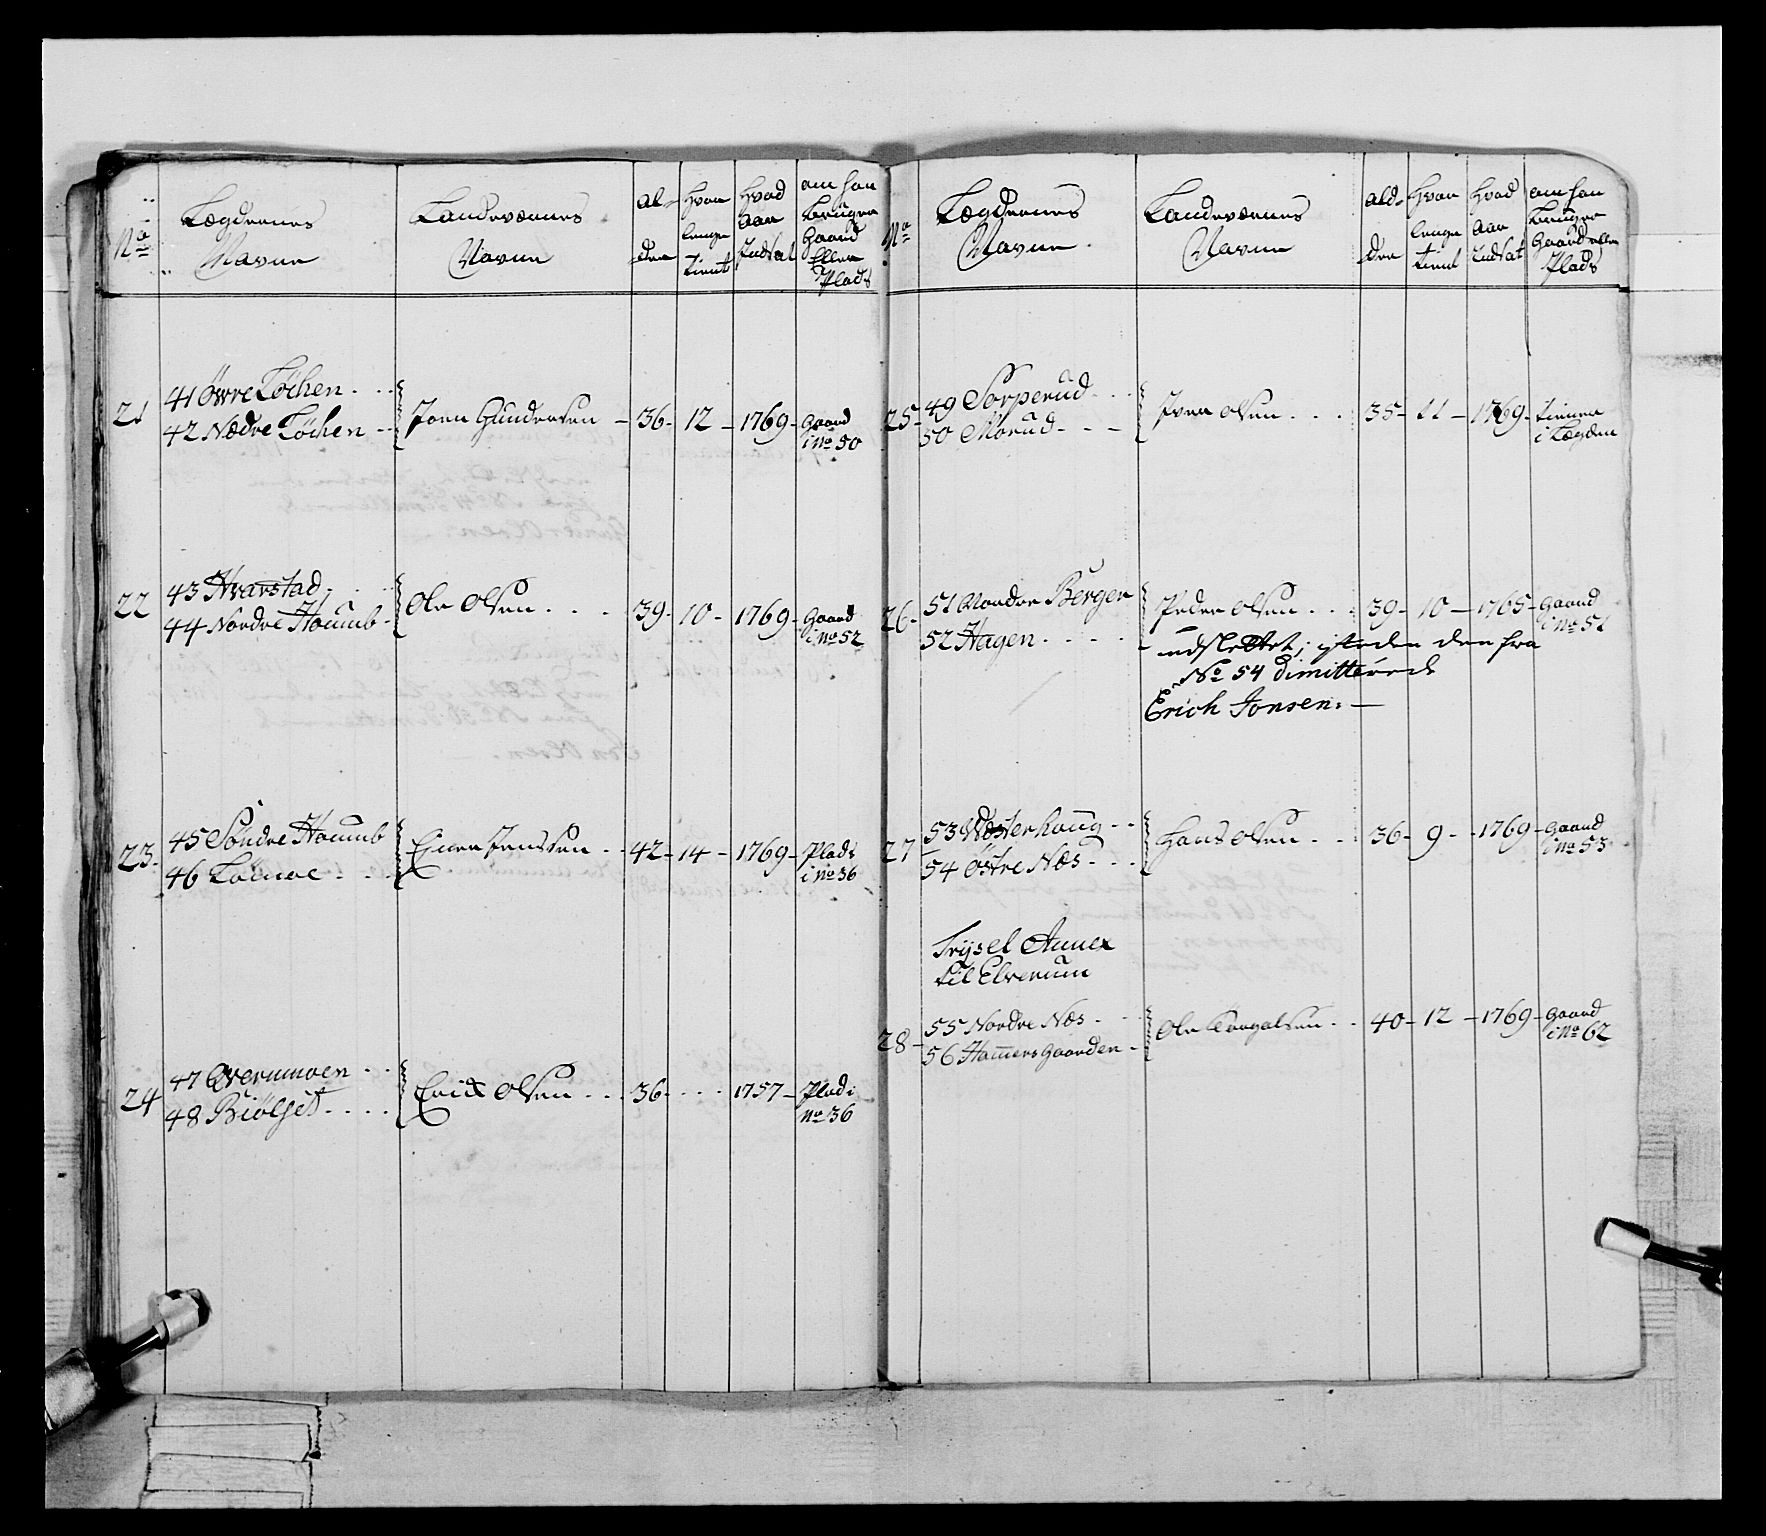 No
Lægdernes
Navne
Landeværnes
Navne
Al-
der
hvor
lenge
tient
hvad
Aar
Indsat
om han
bruger
Gaard
Eller
Plads
21
41 Øvre Löchen
42 Nædre Löchen
Joen Gundersen - 36 - 12 - 1769 - Gaard
i No 50
22
43 Hvarstad
44 Nordre Houmb
Ole Olsen 39 - 10 - 1769 - Gaard
i No 52
23
45 Söndre Houmb
46
Einer Jenssen 42 - 14 - 1769 - Plads
i No 36
24
47 Qverumoen
48 Biölset
Erich Olsen 36 - 1757 - Plad i
No 36
No
Lægdernes
Navne
Landeværnes
Navne
Ald-
der
hvor
lenge
tient
hvad
Aar
Indsat
om han
bruger
Gaard eller
Plads
25
49 Sorperud
50 Morud
Iver Olsen 35 - 11 - 1769 - tienner
i Lægden
26
51 Nordre Berger
52 Hagen
Peder Olsen 39 - 10 - 1765 - Gaard
i No 51
udslettet, isteden den fra
No 54 dimitterede
Erich Jonsen.
27
53 Westerhoug
54 Östre Næs
Hans Olsen 36 - 9 - 1769 - Gaard
i No 53
Trysel Annex
til Elverum
28
55 Nordre Næs
56 Hamersgaarden
Ole Tørgalsen 40 - 12 - 1769 - Gaard
i No 62